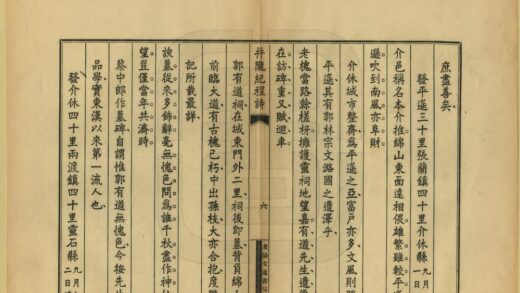 庶盡善矣
發平遙三十里張蘭鎮四十里介休縣九月一日
介邑稱名本介推綿山東面遠相偎雄繁雖較平
遜吹到南風亦阜財
介休城市整齊為平遙之亞富戶亦多文風則
平遙其有郭林宗文潞國之遺澤乎
老槐當路榦槎枒擁護靈祠地望嘉有道先生遺
在訪碑重又賦迴車
郭有道祠在城東門外二里祠後即墓背負綿
前臨大道有古槐已朽中出孫枝大亦合抱度
記所載最詳
諛墓從來多飾辭毫無愧色問為誰千秋盡作神
望豈僅當年共濟時
蔡中郎作墓碑自謂惟郭有道無愧色今按先生
品學實東漢以來第一流人也
發介休四十里兩渡鎮四十里靈石縣九月二日
井隴紀程詩
六